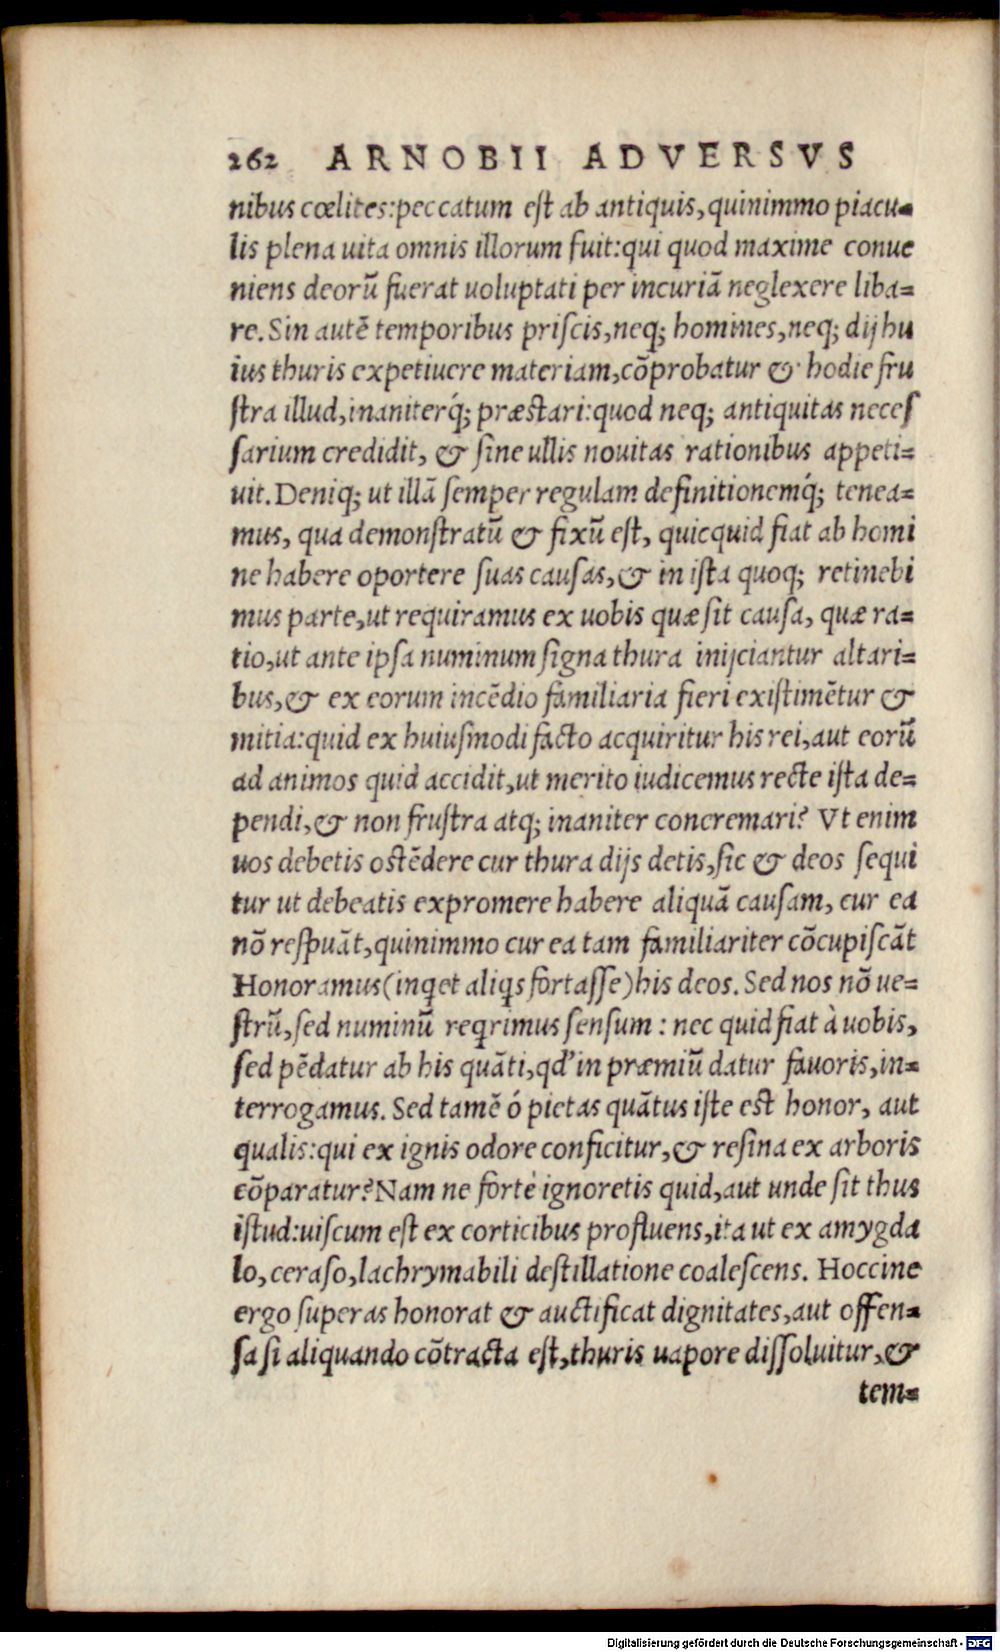 262 ARNOBII ADVERSVS
nibus cœlites:peccatum est ab antiquis,quinimmo piacu-
lis plena uita omnis illorum fuit:qui quod maxime conue
niens deorũ fuerat uoluptati per incuriã neglexere liba-
re. Sin autẽ temporibus priscis,neq; homines,neq; dij hu
ius thuris expetiuere materiam,cõprobatur & hodie fru
stra illud,inaniterq́; præstari:quod neq; antiquitas neces
sarium credidit, & sine ullis nouitas rationibus appeti-
uit. Deniq; ut illã semper regulam definitionemq́; tenea-
mus, qua demonstratũ & fixũ est, quicquid fiat ab homi
ne habere oportere suas causas,& in ista quoq; retinebi
mus parte,ut requiramus ex uobis quæ sit causa, quæ ra-
tio,ut ante ipsa numinum signa thura inijciantur altari-
bus,& ex eorum incẽdio familiaria fieri existimẽtur &
mitia:quid ex huiusmodi facto acquiritur his rei,aut eorũ
ad animos quid accidit,ut merito iudicemus recte ista de-
pendi,& non frustra atq; inaniter concremari? Vt enim
uos debetis ostẽdere cur thura dijs detis,sic & deos sequi
tur ut debeatis expromere habere aliquã causam, cur ea
nõ respuãt,quinimmo cur ea tam familiariter cõcupiscãt
Honoramus(inꝗet aliꝗs fortasse)his deos. Sed nos nõ ue-
strũ,sed numinũ reꝗrimus sensum : nec quid fiat à uobis,
sed pẽdatur ab his quãti,qd' in præmiũ datur fauoris,in-
terrogamus. Sed tamẽ ó pietas quãtus iste est honor, aut
qualis:qui ex ignis odore conficitur,& resina ex arboris
cõparatur? Nam ne fortè ignoretis quid,aut unde sit thus
istud:uiscum est ex corticibus profluens,ita ut ex amygda
lo,ceraso,lachrymabili destillatione coalescens. Hoccine
ergo superas honorat & auctificat dignitates,aut offen-
sa si aliquando cõtracta est,thuris uapore dissoluitur,&
tem-
Digitalisierung gefördert durch die Deutsche Forschungsgemeinschaft - DFG